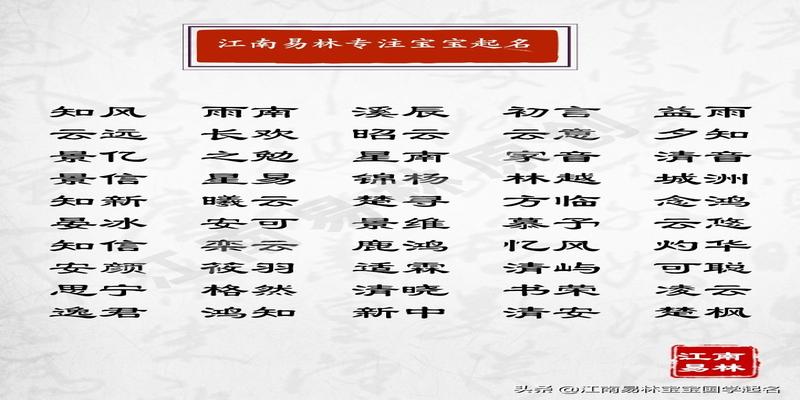 江南易林专注宝宝起名
知风 雨南 溪辰 初言 益雨
云远 长欢 昭云 云意 夕知
景亿 之勉 星南 家音 清音
景信 星易 锦杨 林越 城洲
知新 曦云 楚寻 方临 念鸿
晏冰 安可 景维 慕予 云悠
知信 栾云 鹿鸿 忆风 灼华
安颜 筱羽 适霖 清屿 可聪
思宁 格然 清晓 书荣 凌云
逸君 鸿知 新中 清安 楚枫
江南
易林
头条 @江南易林宝宝国学起名